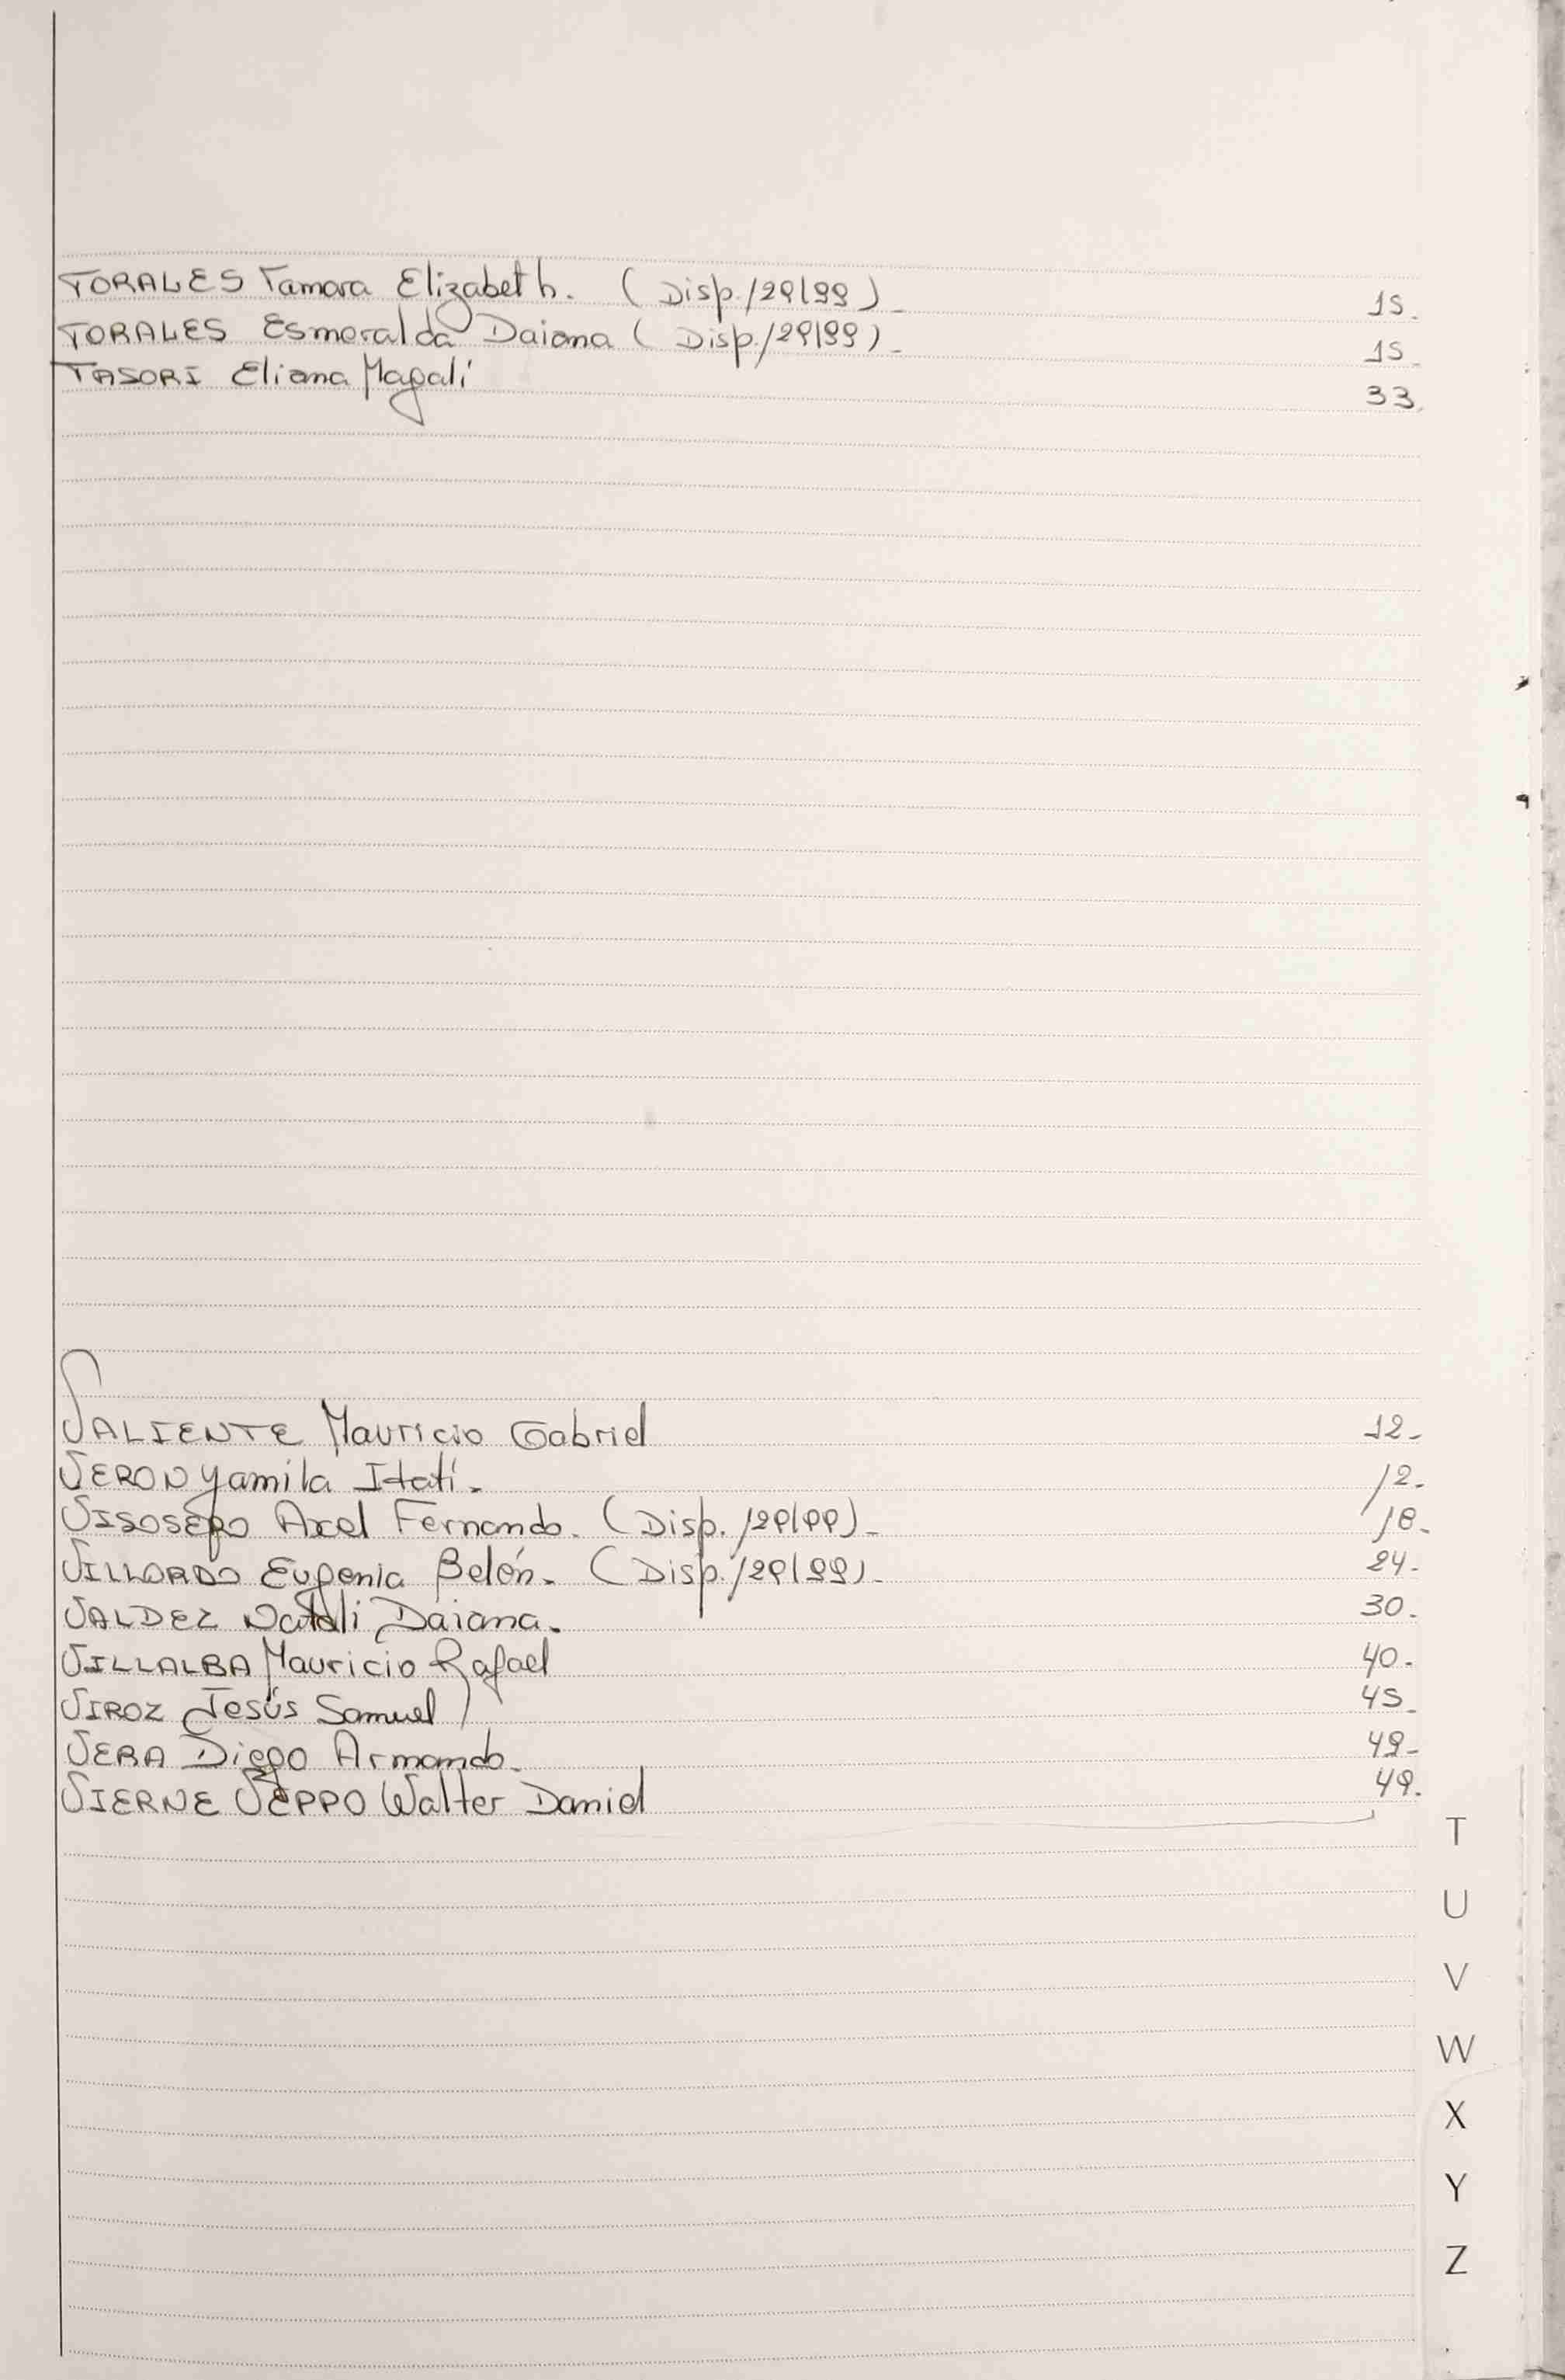 TORALES Tamara Elizabeth. (Disp./29/99)_ 15.
TORALES Esmeralda Daiana (Disp./29/99)_ 15_
TASORI Eliana Magali 33.
VALIENTE Mauricio Gabriel 12_
VERON Yamila Itatí. 12.
VISOSERO Axel Fernando. (Disp. /29/99)_ 18.
VILLORDO Eugenia Belén. (Disp./29/99)_ 24.
VALDEZ Natali Daiana. 30.
VILLALBA Mauricio Rafael 40.
VIROZ Jesús Samuel 45_
VERA Diego Armando. 49_
VIERNE VEPPO Walter Daniel 49.
T
U
V
W
X
Y
Z